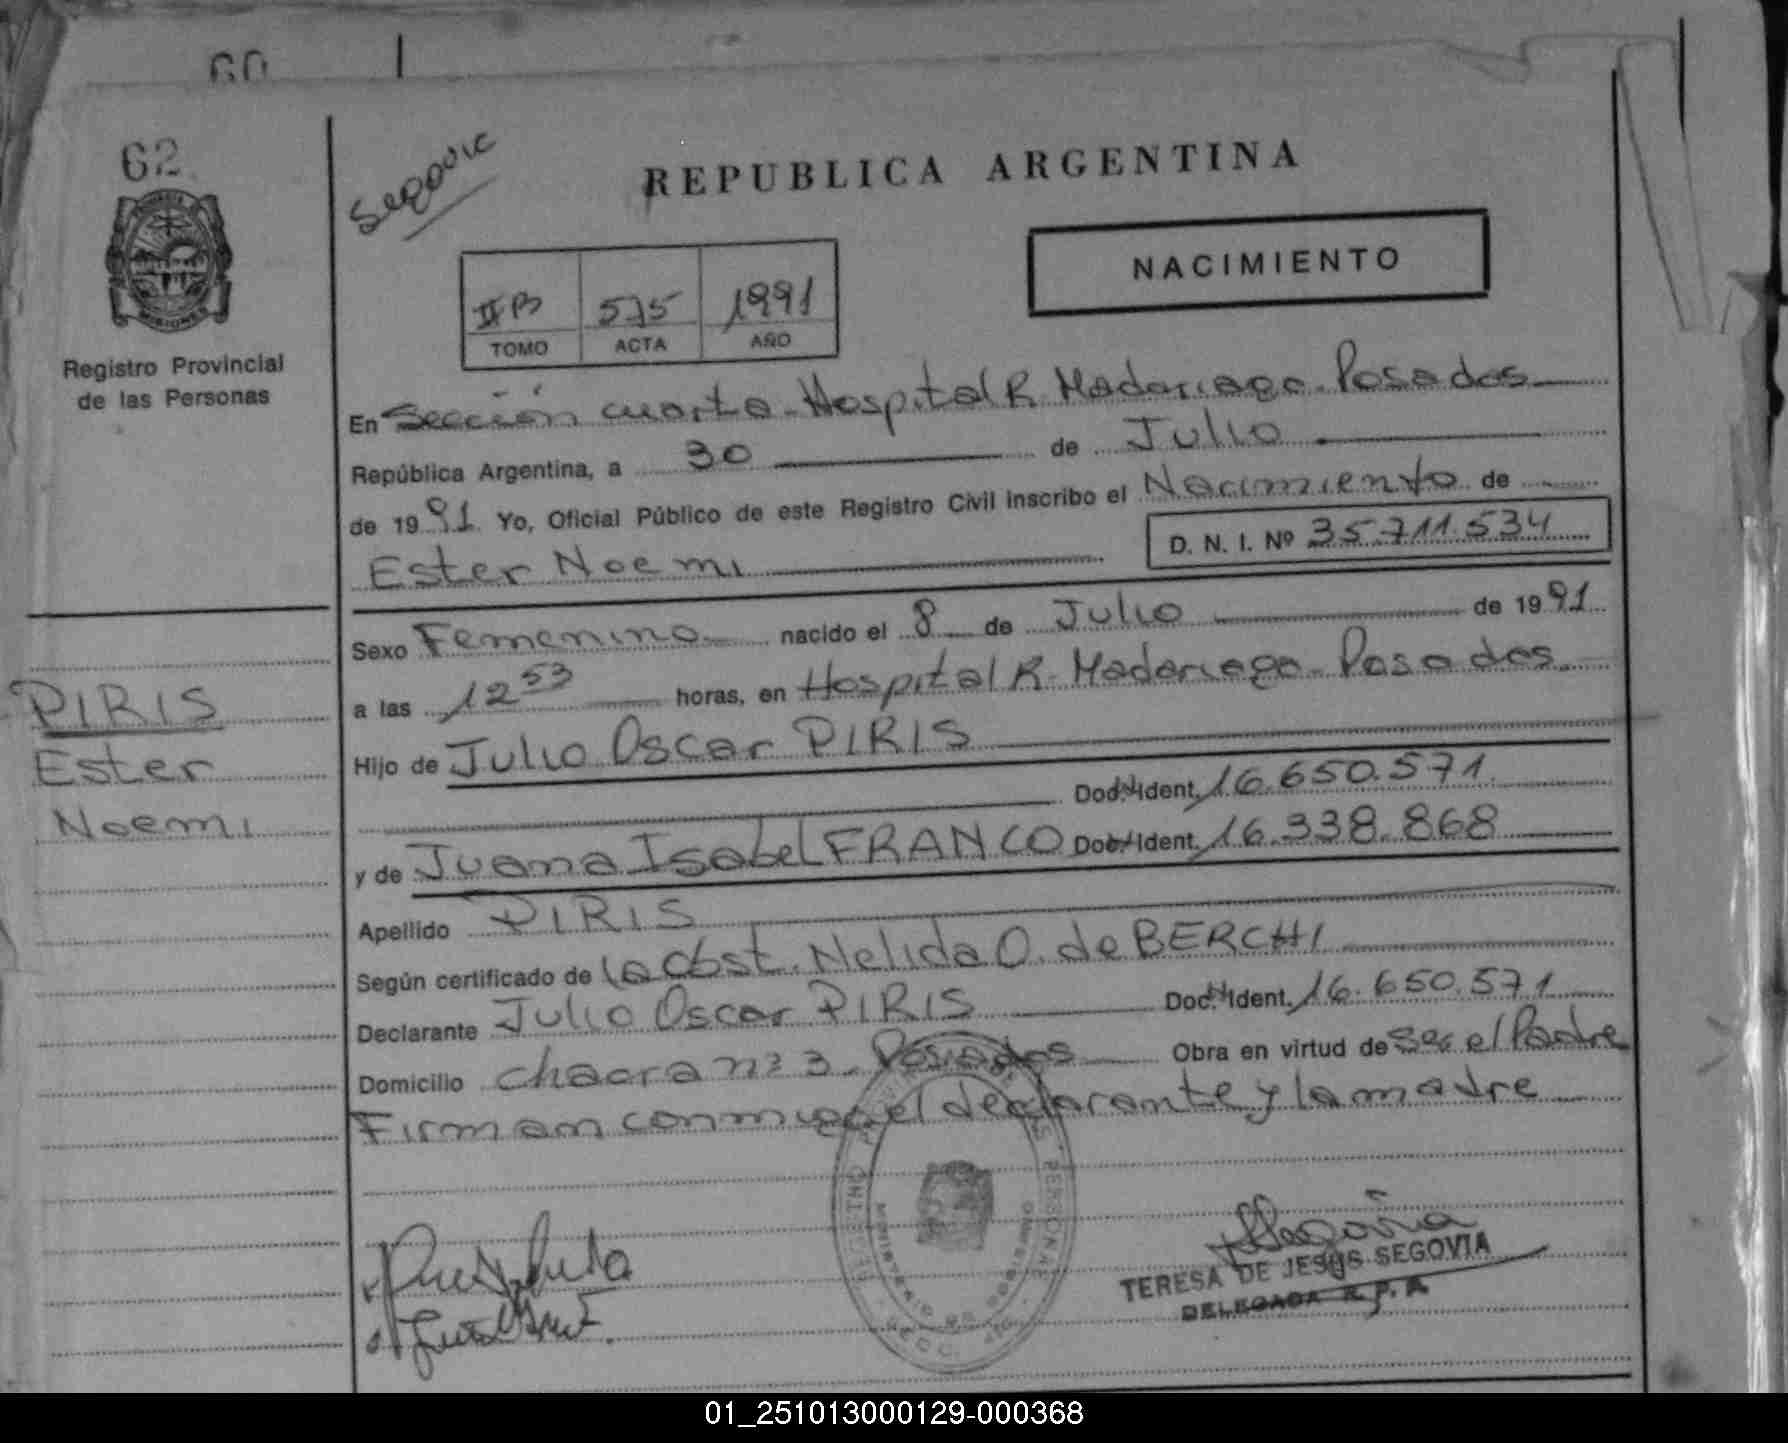 60
62
Segovia
REPUBLICA ARGENTINA
NACIMIENTO
MISIONES
II B 575 1991
TOMO ACTA AÑO
Registro Provincial
de las Personas
En Sección cuarta - Hospital R. Madariaga - Posadas
República Argentina, a 30 de Julio
de 1991 Yo, Oficial Público de este Registro Civil inscribo el Nacimiento de
Ester Noemi D. N. I. Nº 35.711.534
Sexo Femenino nacido el 8 de Julio de 1991
a las 12 53 horas, en Hospital R. Madariaga - Posadas
Hijo de Julio Oscar PIRIS
Doc. Ident. 16.650.571
y de Juana Isabel FRANCO Doc. Ident. 16.338.868
Apellido PIRIS
Según certificado de la Obst. Nelida O. de BERCHI
Declarante Julio Oscar PIRIS Doc. Ident. 16.650.571
Domicilio chacra nº 3 - Posadas Obra en virtud de ser el Padre
Firman conmigo el declarante y la madre
PIRIS
Ester
Noemi
TERESA DE JESUS SEGOVIA
DELEGADA R. P. P.
01_251013000129-000368